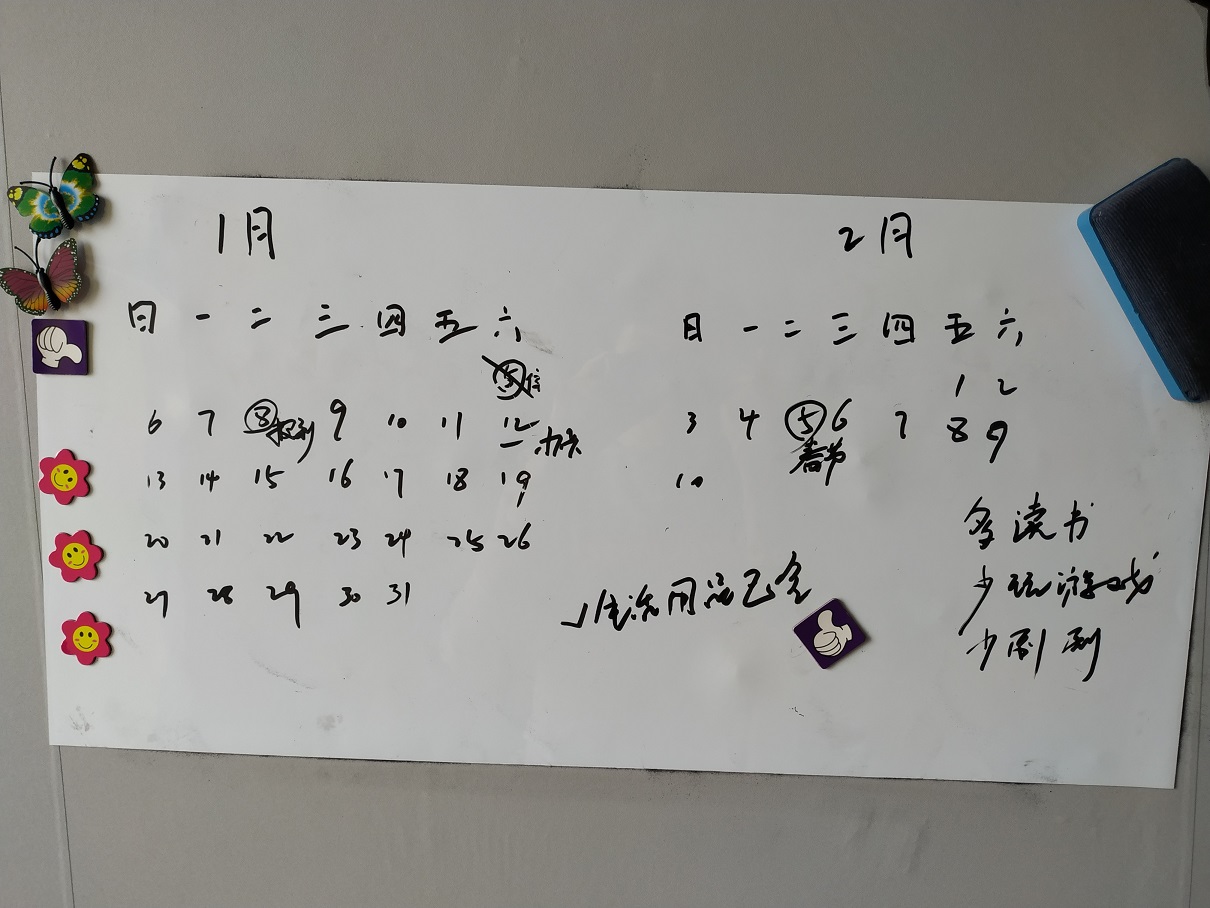 1月
日 一 二 三 四 五 六
⑤
6 7 ⑧报到 9 10 11 12
13 14 15 16 17 18 19
20 21 22 23 24 25 26
27 28 29 30 31
2月
日 一 二 三 四 五 六
1 2
3 4 ⑤ 6 7 8 9
春节
10
用品已全
多读书
少玩游戏
少刷剧